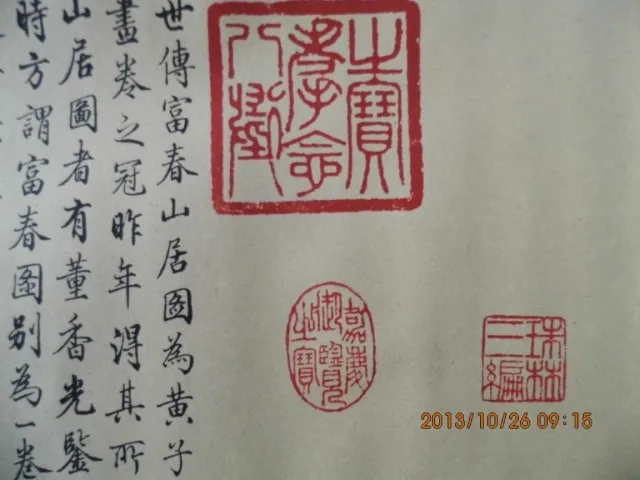 世傳富春山居圖為黃子
畫卷之冠昨年得其所
山居圖者有董香光鑒
時方謂富春圖别為一卷
八徵耄念之寶
嘉慶御覽之寶
珠林三編
2013/10/26 09:15